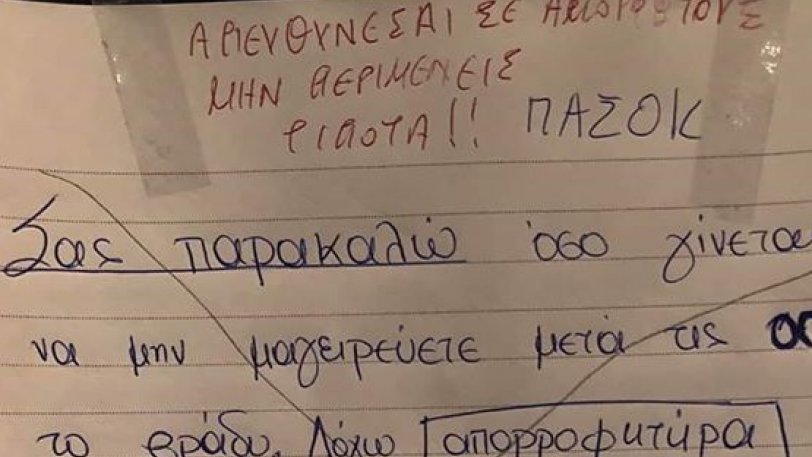 ΑΠΕΥΘΥΝΕΣΑΙ ΣΕ ΑΝΑΙΣΘΗΤΟΥΣ
ΜΗΝ ΠΕΡΙΜΕΝΕΙΣ
ΤΙΠΟΤΑ!! ΠΑΣΟΚ
Σας παρακαλώ όσο γίνεται
να μην μαγειρεύετε μετά τις
το βράδυ. Λόγω απορροφητήρα